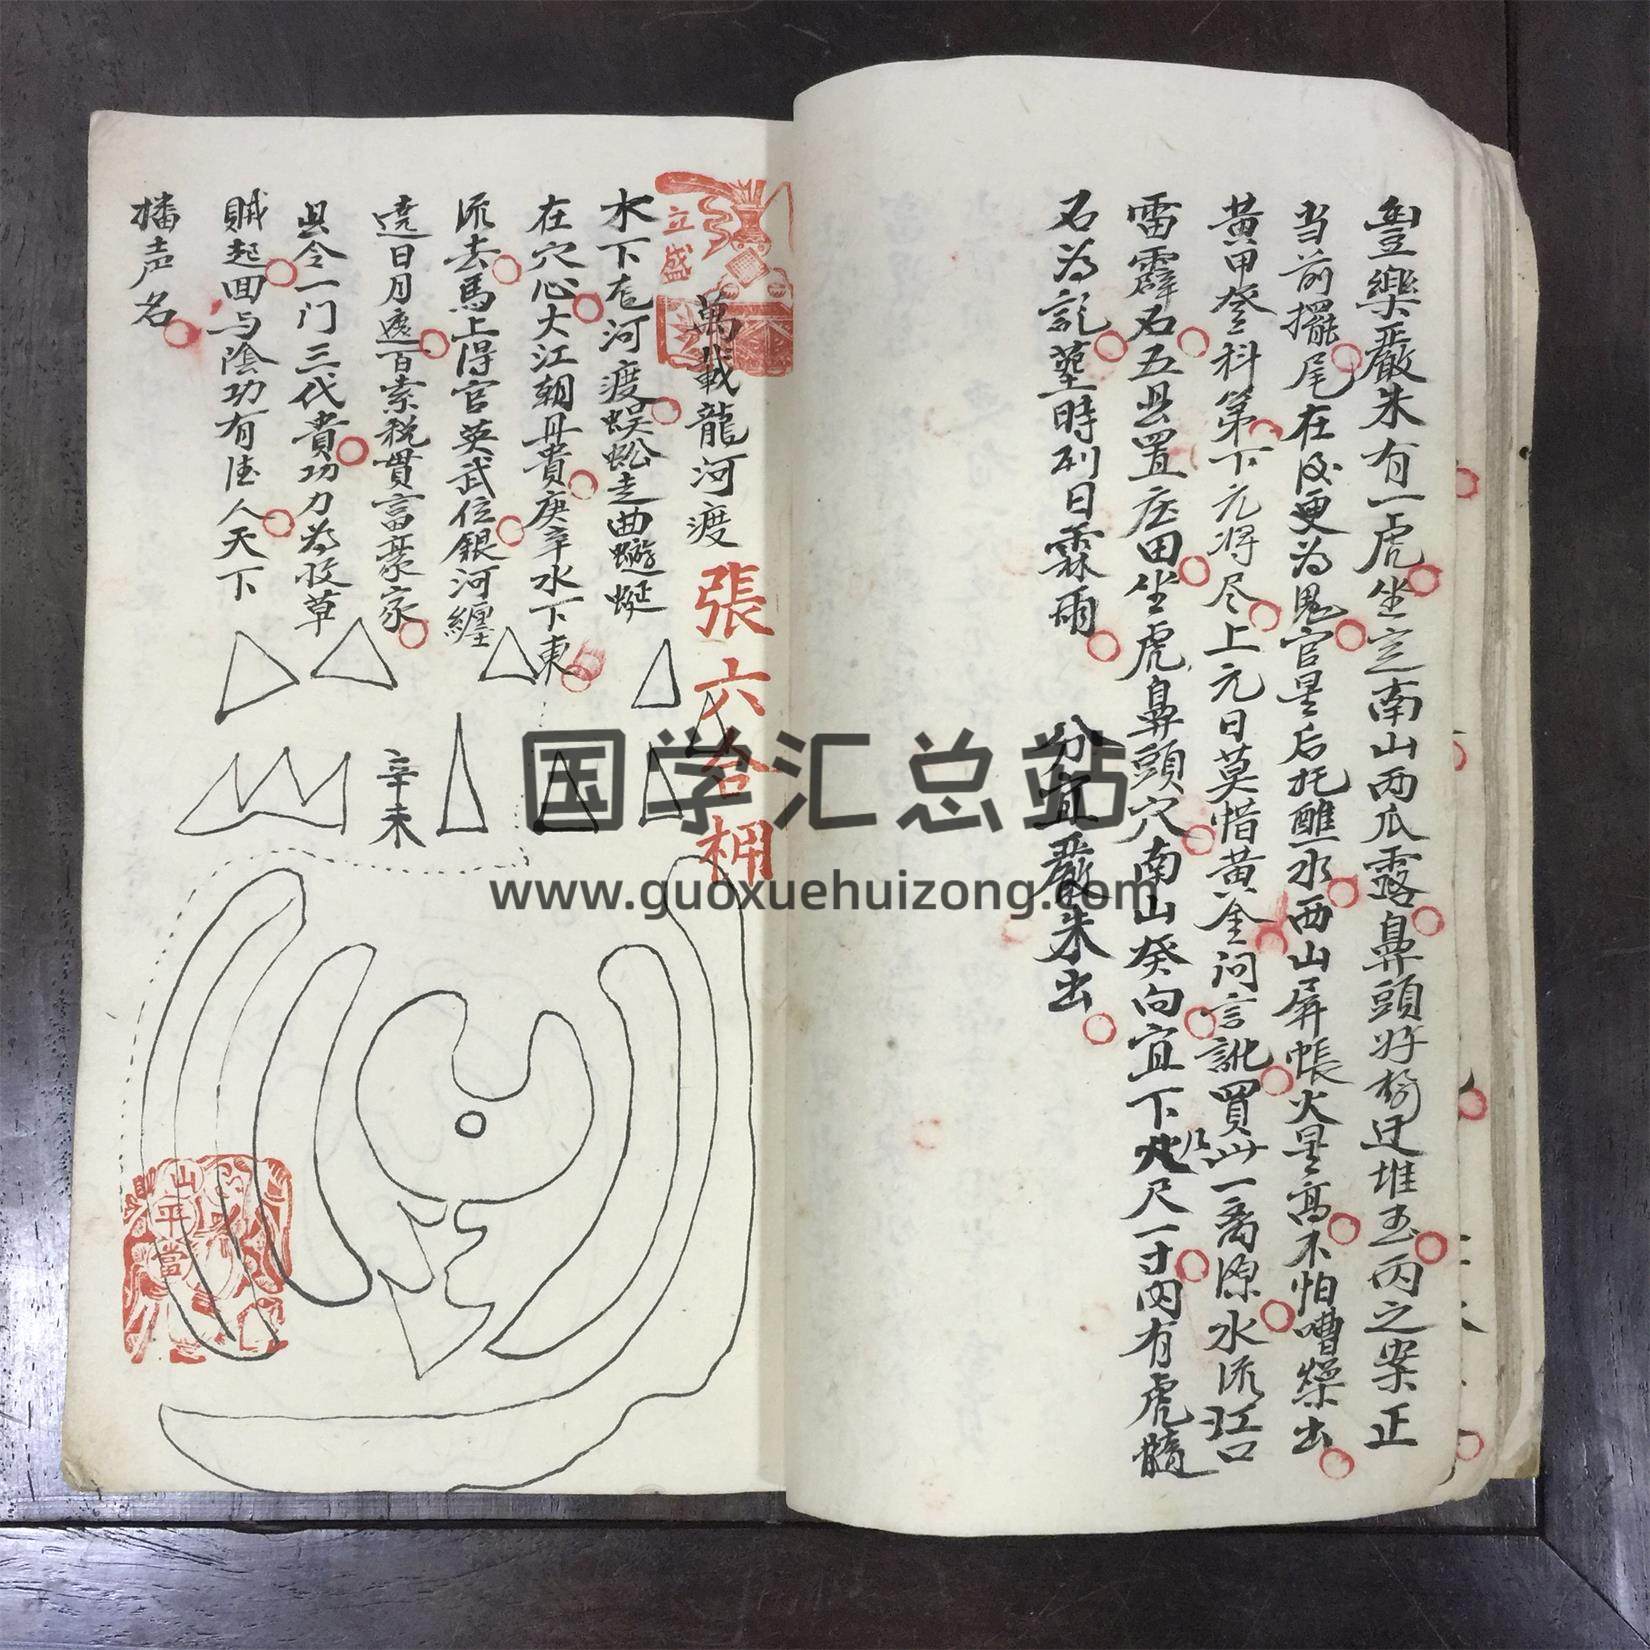 豊樂嚴朱有一虎坐定南山两爪露鼻頭好 迁堆玉内之案正
当前擺尾在后更为鬼官星后托醮水西山屏帳火星高不怕嘈燥出
黃甲登科第下元将尽上元日莫惜黃金问言訛買此一离源水流江口
雷霹石五里置庄田坐虎鼻頭穴南山癸向宜下 尺一寸内有虎髓
石为記塟時列日霖雨
分宜嚴朱出
萬載龍河渡
張六
水下 河渡蜈蚣走曲蜒
在穴心大江朝丹貴庚辛水下東
流去馬上得官英武位銀河纏
遶日月邊百索税貫富豪家
里令一门三代貴功力为收草
賊起回与陰功有 人天下
播声名
辛未
立盛
山平當
国学汇总站
www.guoxuehuizong.com